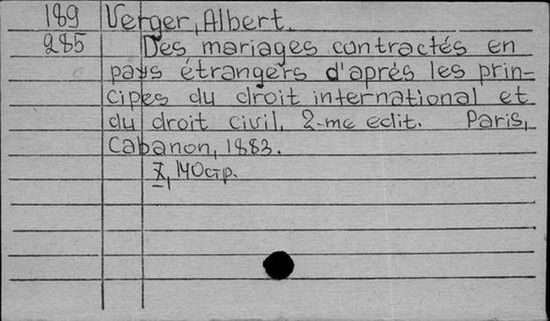 189 Verger, Albert.
285 Des mariages contractés en
pays étrangers d'après les prin-
cipes du droit international et
du droit civil. 2-me edit. Paris,
Cabanon, 1883.
X, 140 стр.